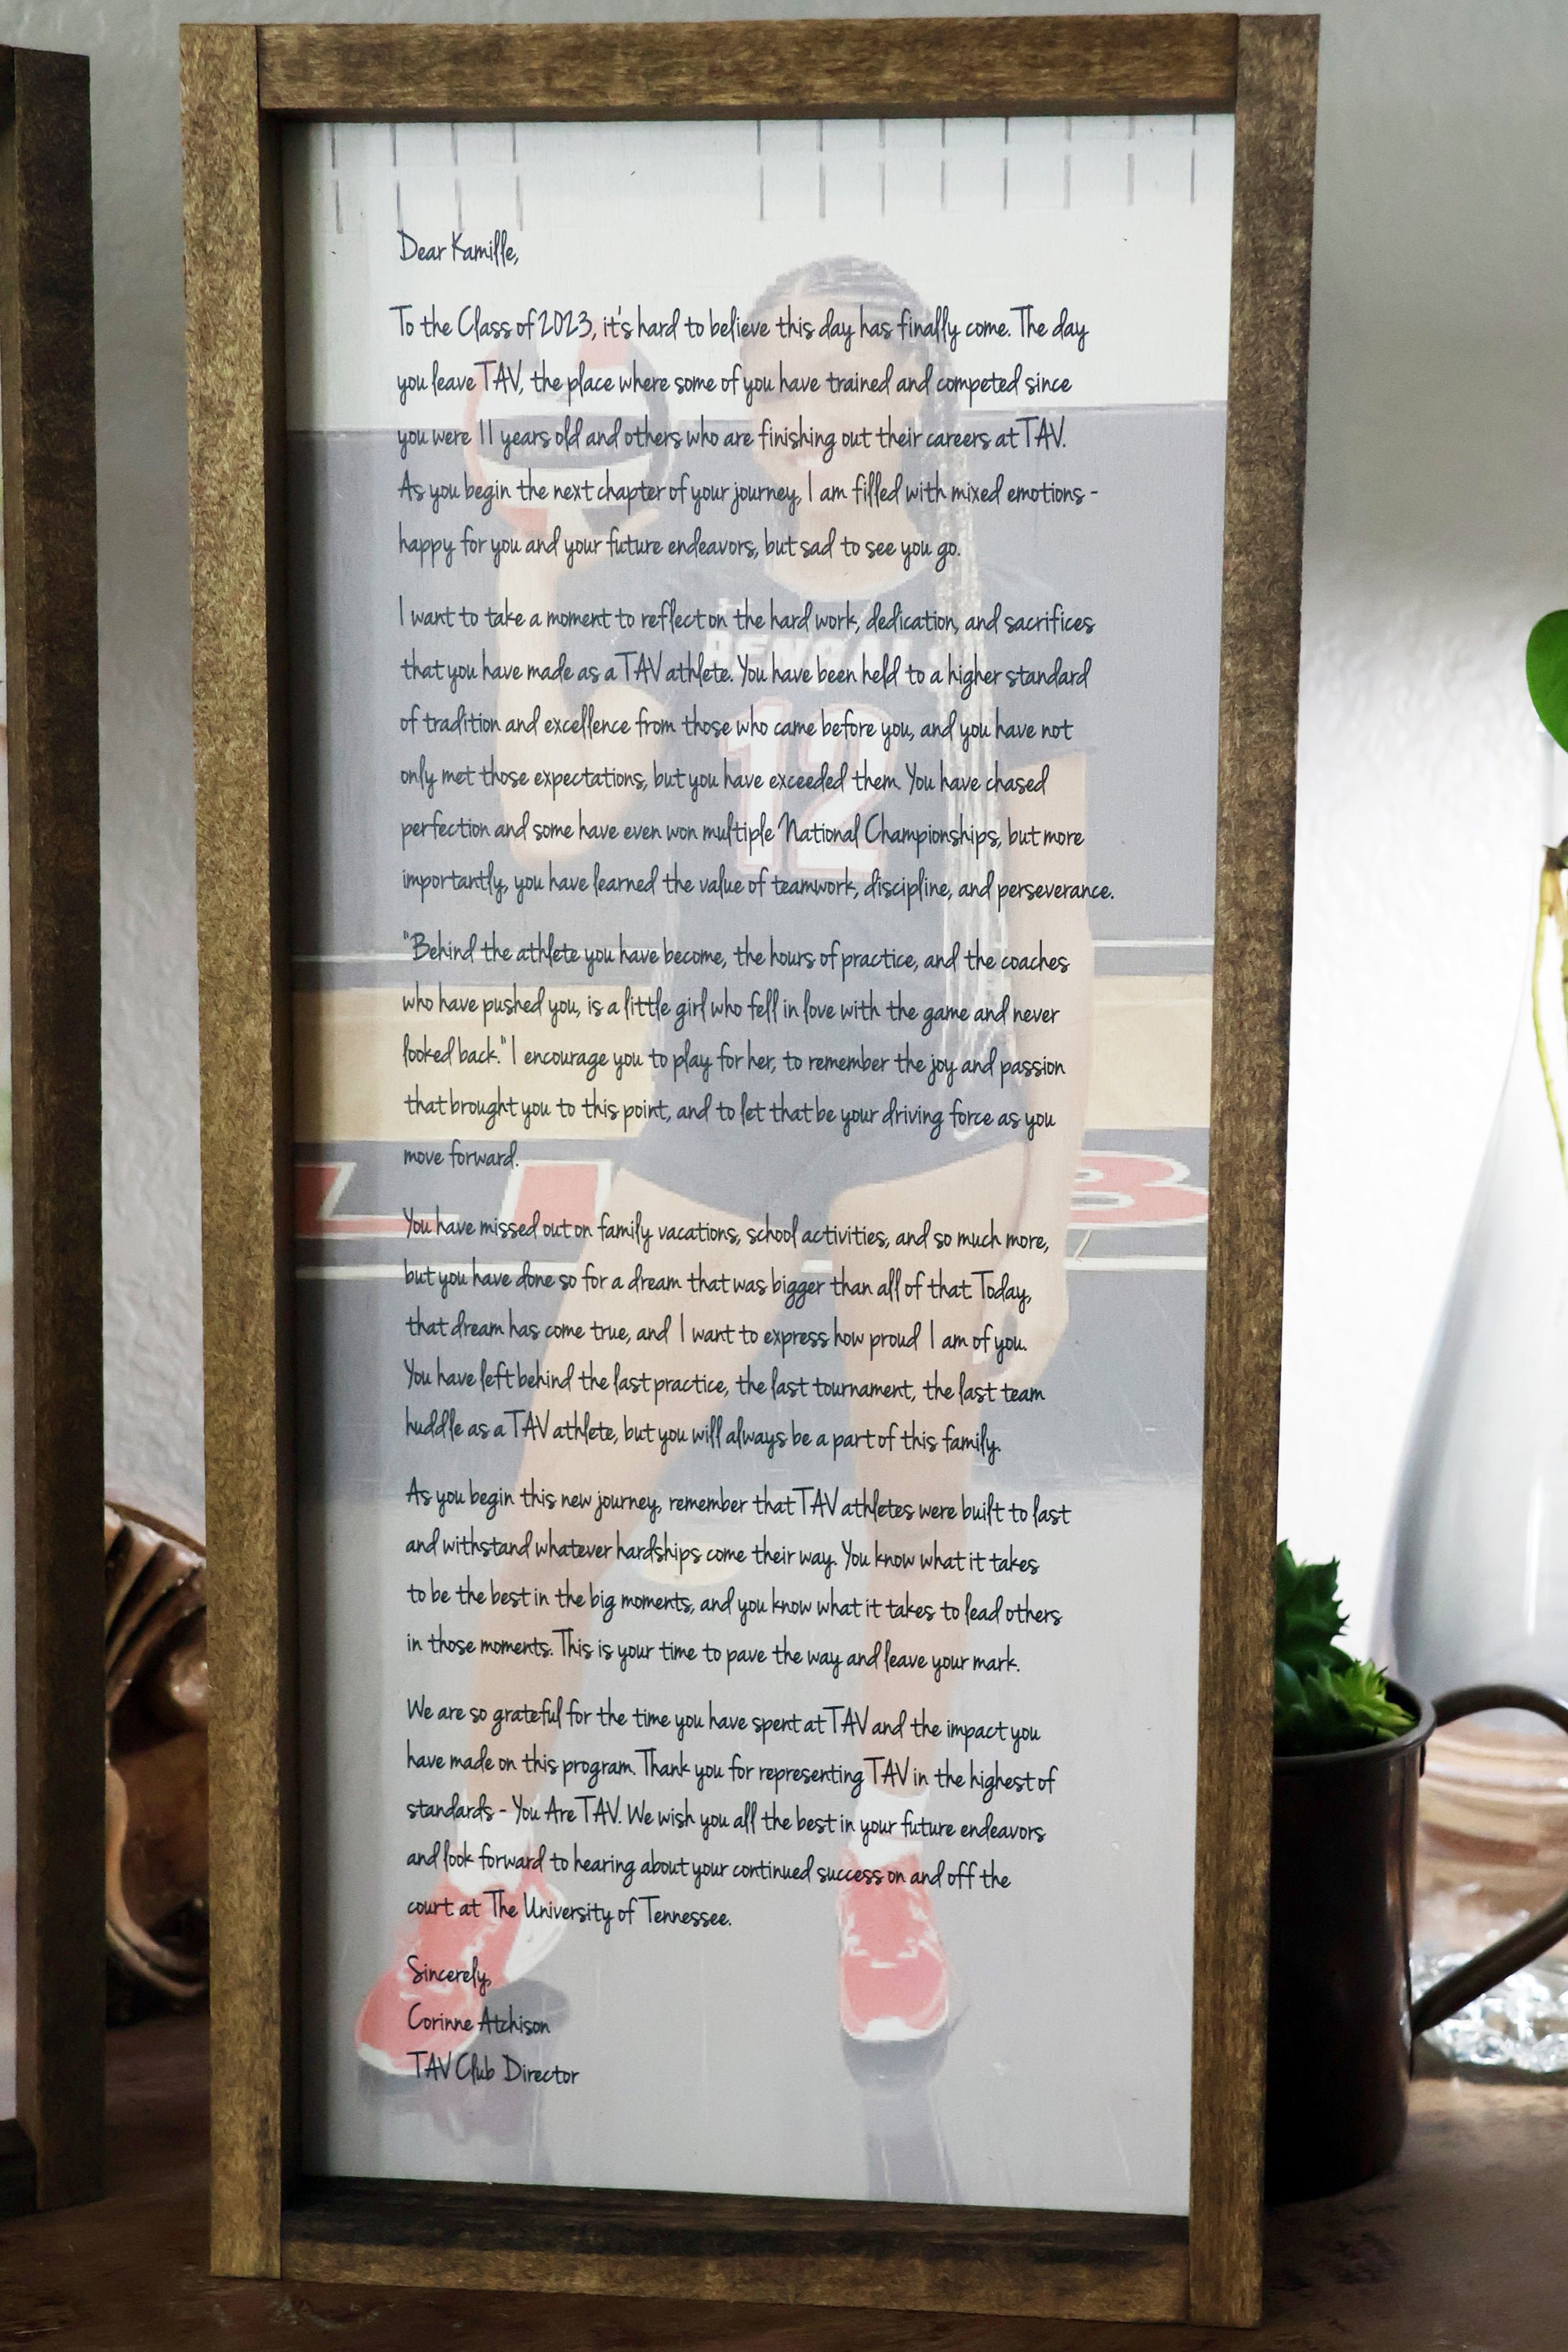 Dear Kamille,
To the Class of 2023, it's hard to believe this day has finally come. The day
you leave TAV, the place where some of you have trained and competed since
you were 11 years old and others who are finishing out their careers at TAV.
As you begin the next chapter of your journey, I am filled with mixed emotions -
happy for you and your future endeavors, but sad to see you go.
I want to take a moment to reflect on the hard work, dedication, and sacrifices
that you have made as a TAV athlete. You have been held to a higher standard
of tradition and excellence from those who came before you, and you have not
only met those expectations, but you have exceeded them. You have chased
perfection and some have even won multiple National Championships, but more
importantly, you have learned the value of teamwork, discipline, and perseverance.
"Behind the athlete you have become, the hours of practice, and the coaches
who have pushed you, is a little girl who fell in love with the game and never
looked back." I encourage you to play for her, to remember the joy and passion
that brought you to this point, and to let that be your driving force as you
move forward.
You have missed out on family vacations, school activities, and so much more,
but you have done so for a dream that was bigger than all of that. Today,
that dream has come true, and I want to express how proud I am of you.
You have left behind the last practice, the last tournament, the last team
huddle as a TAV athlete, but you will always be a part of this family.
As you begin this new journey, remember that TAV athletes were built to last
and withstand whatever hardships come their way. You know what it takes
to be the best in the big moments, and you know what it takes to lead others
in those moments. This is your time to pave the way and leave your mark.
We are so grateful for the time you have spent at TAV and the impact you
have made on this program. Thank you for representing TAV in the highest of
standards - You Are TAV. We wish you all the best in your future endeavors
and look forward to hearing about your continued success on and off the
court at The University of Tennessee.
Sincerely,
Corinne Atchison
TAV Club Director
12